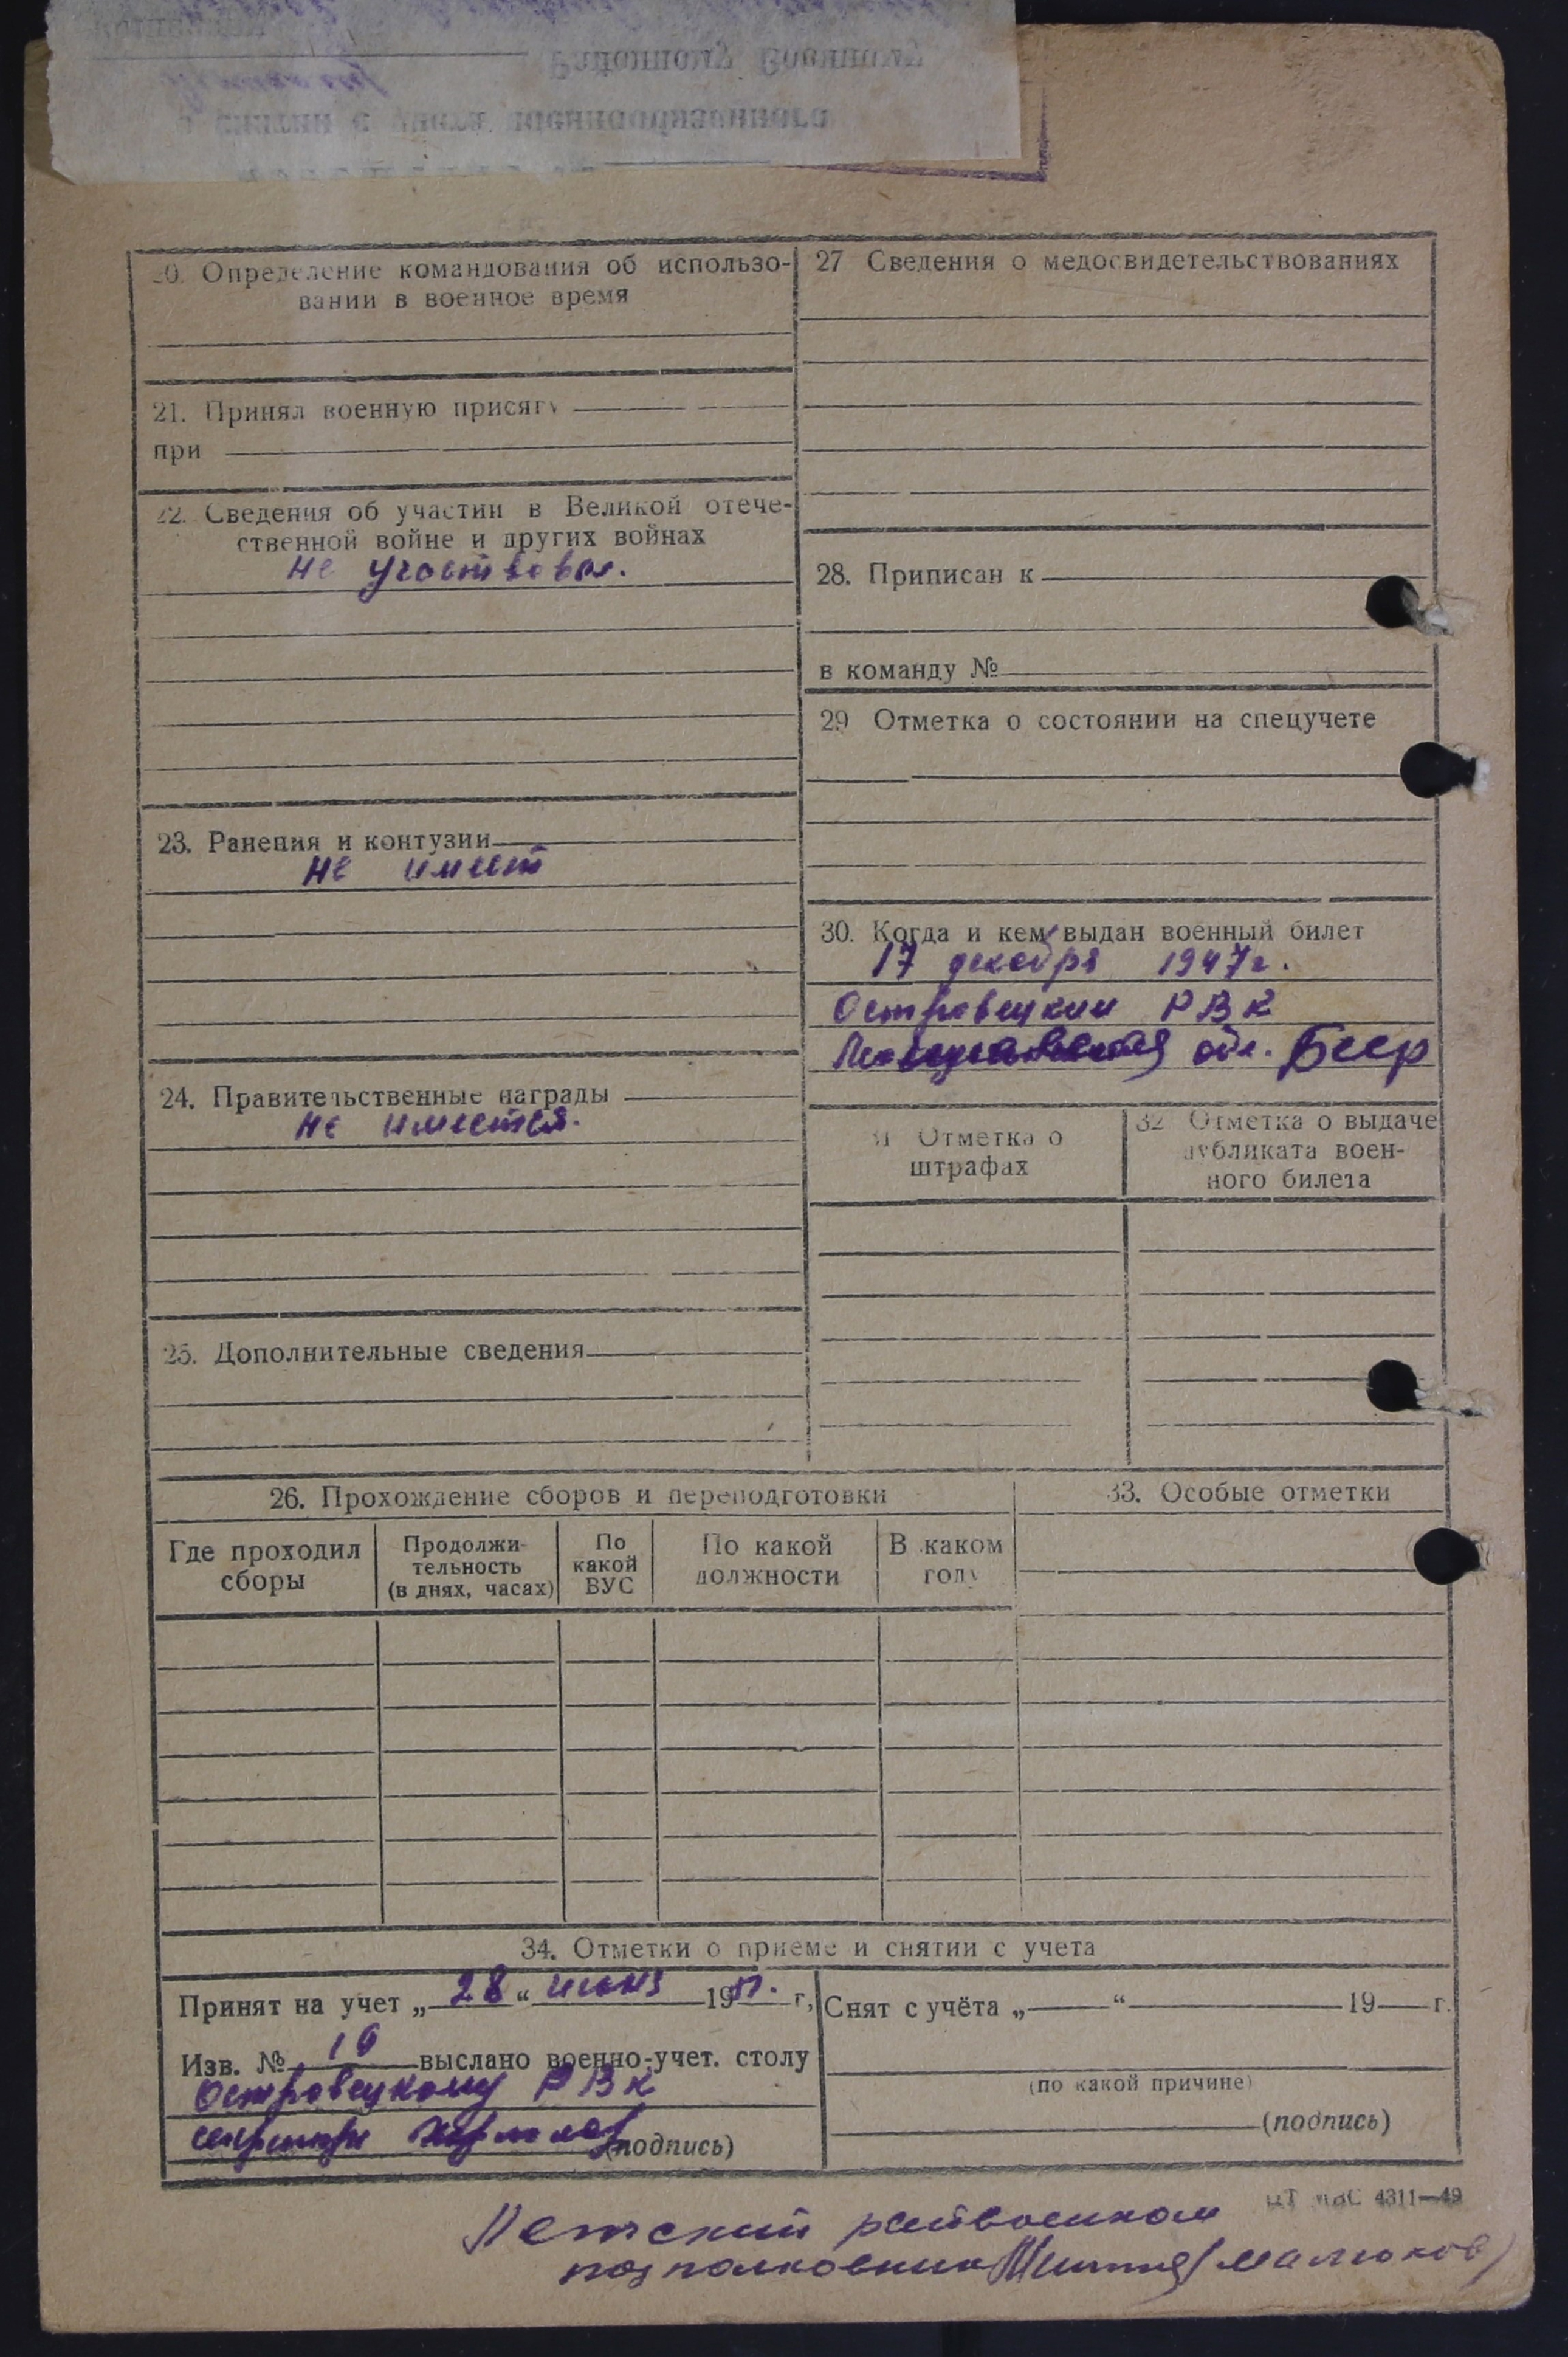 20. Определение командования об использо-
вании в военное время
21. Принял военную присягу
при
22. Сведения об участии в Великой отече-
ственной войне и других войнах
не участвовал.
23. Ранения и контузии
не имеет
24. Правительственные награды
не имеется.
25. Дополнительные сведения
27 Сведения о медосвидетельствованиях
28. Приписан к
в команду №
29 Отметка о состоянии на спецучете
30. Когда и кем выдан военный билет
17 декабря 1947г.
Островецким РВК
обл. Бсср
31 Отметка о
штрафах
32 Отметка о выдаче
дубликата воен-
ного билета
26. Прохождение сборов и переподготовки
Где проходил
сборы
Продолжи-
тельность
(в днях, часах)
По
какой
ВУС
По какой
должности
В каком
году
33. Особые отметки
34. Отметки о приеме и снятии с учета
Принят на учет „28“ 19 г,
Изв. № 10 выслано военно-учет. столу
Островецкому РВК
(подпись)
Снят с учёта „ “ 19 г.
(по какой причине)
(подпись)
4311—49
райвоенком
подполковник (Малюков)